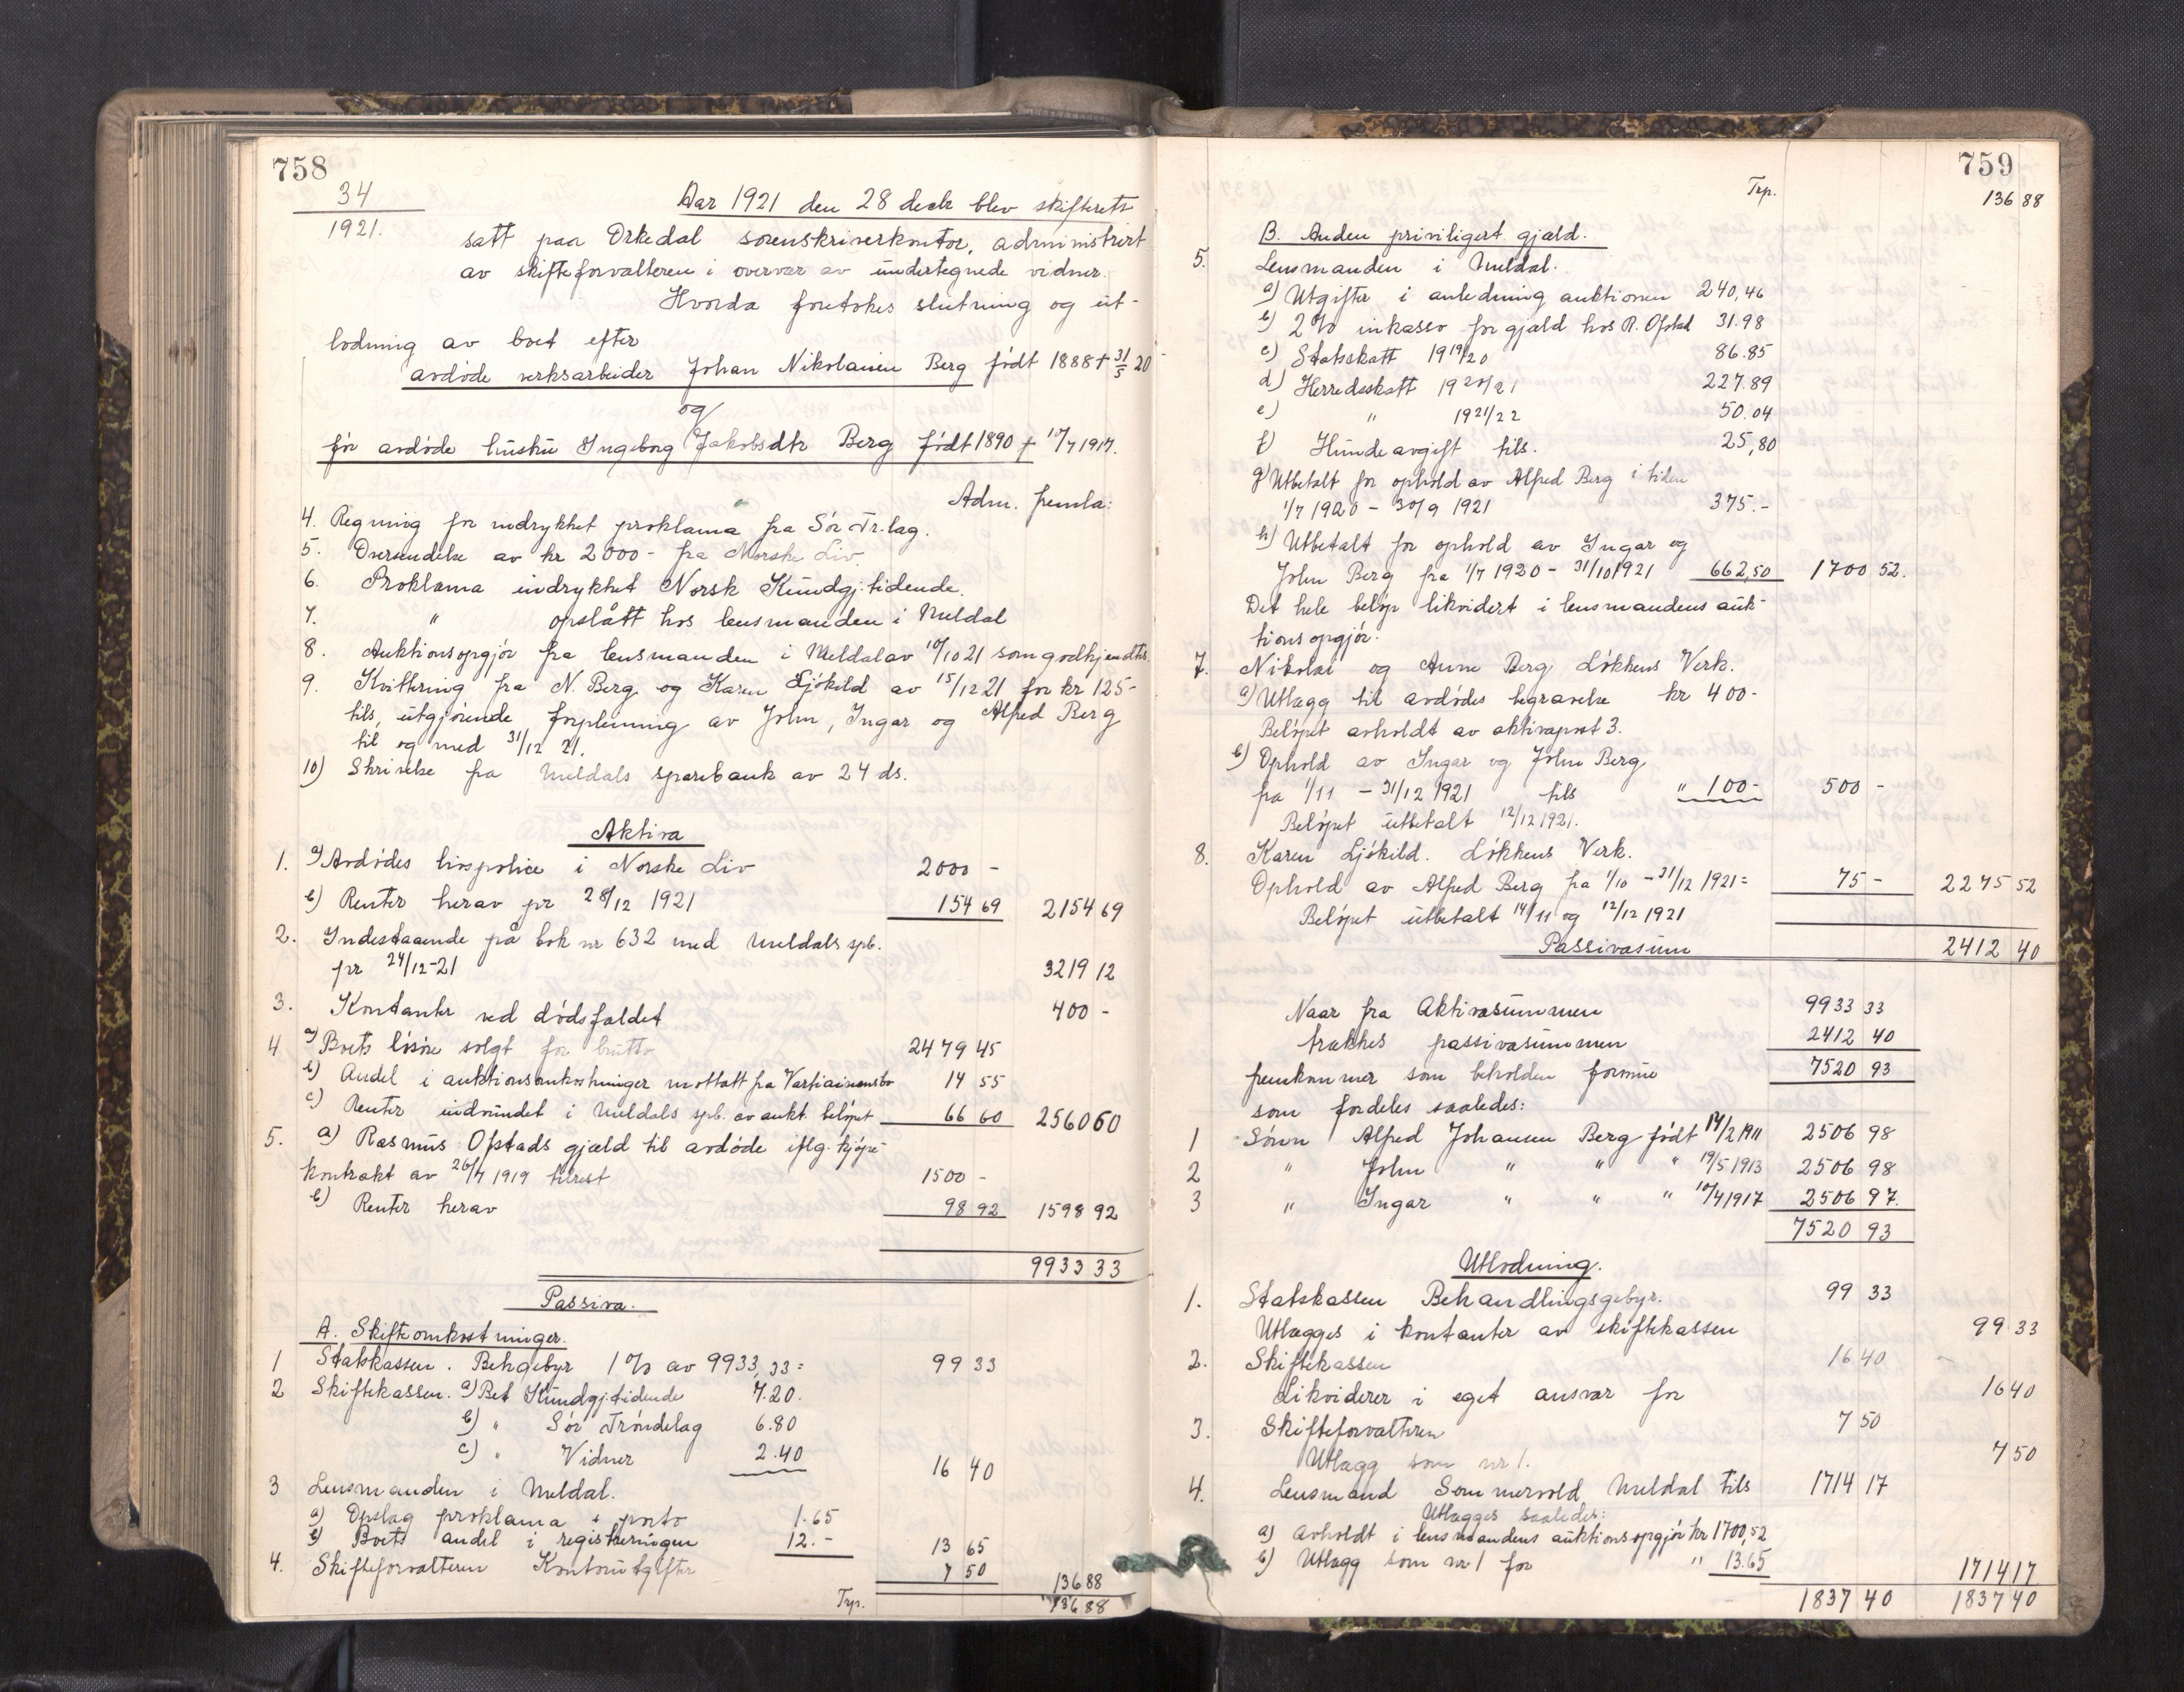 758
34
1921.
Aar 1921 den 28 decbr blev skifterett
satt paa Orkedal sorenskriverkontor, administrert
av skifteforvalteren i overvær av undertegnede vidner.
Hvorda foretokes slutning og ut-
lodning av boet efter
avdøde verksarbeider Johan Nikolaisen Berg født 1888 + 31/5 20
og
før avdøde hustru Ingeborg Jakobsdtr Berg født 1890 + 17/7 1917.
Adm. fremla:
4. Regning for indrykket proklama fra Sør Tr.lag.
5. Oversendelse av kr 2000- fra Norske Liv.
6. Proklama indrykket Norsk Kundgj.tidende.
7. " opslått hos lensmanden i Meldal
8. Auktionsopgjør fra lensmanden i Meldal av 10/10 21 som godkjendtes.
9. Kvittering fra N. Berg og Karen Ljøkild av 15/12 21 for kr 125-
tils, utgjørende forpleining av John, Ingar og Alfred Berg
til og med 31/12 21.
10) Skrivelse fra Meldals sparebank av 24 ds.
Aktiva
1. a) Avdødes livspolice i Norske Liv 2000 -
b) Renter herav pr 28/12 1921 154 69 2154 69
2. Indestaaende på bok nr 632 med Meldals spb.
pr 24/12-21 3219 12
3. Kontanter ved dødsfaldet 400 -
4 a) Boets løsøre solgt for brutto 2479 45
b) Andel i auktionsomkostninger mottatt fra Vartiainensbo 14 55
c) Renter indvundet i Meldals spb. av aukt. beløpet 66 60 2560 60
5. a) Rasmus Ofstads gjæld til avdøde iflg. kjøpe-
kontrakt av 26/7 1919 tilrest 1500 -
b) Renter herav 98 92 1598 92
9933 33
Passiva.
A. Skifteomkostninger.
1 Statskassen. Behgebyr 1% av 9933,33 = 99 33
2 Skiftekassen. a) Bet Kundgj.tidende 7.20.
b) " Sør Trøndelag 6.80
c) " Vidner 2.40 16 40
3 Lensmanden i Meldal.
a) Opslag proklama + porto 1.65
b) Boets andel i registreringen 12.- 13 65
4. Skifteforvalteren Kontorutgifter 7 50 136 88
Trp. 136 88
759
Trp. 136 88
B. Anden priviligert gjæld.
5. Lensmanden i Meldal.
a) Utgifter i anledning auktionen 240,46
b) 2% inkasso for gjæld hos R. Ofstad 31.98
c) Statsskatt 1919/20 86.85
d) Herredsskatt 1920/21 227.89
e) " 1921/22 50.04
f) Hundeavgift tils. 25,80
g) Utbetalt for ophold av Alfred Berg i tiden
1/7 1920 - 30/9 1921 375.-
h) Utbetalt for ophold av Ingar og
John Berg fra 1/7 1920 - 31/10 1921 662,50 1700 52.
Det hele beløp likvidert i lensmandens auk-
tionsopgjør.
7. Nikolai og Anne Berg Løkkens Verk.
a) Utlægg til avdødes begravelse kr 400-
Beløpet avholdt av aktivapost 3.
b) Ophold av Ingar og John Berg
fra 1/11 - 31/12 1921 tils " 100- 500 -
Beløpet utbetalt 12/12 1921.
8. Karen Ljøkild. Løkkens Verk.
Ophold av Alfred Berg fra 1/10 - 31/12 1921 = 75 - 2275 52
Beløpet utbetalt 14/11 og 12/12 1921
Passivasum 2412 40
Naar fra Aktivasummen 9933 33
trækkes passivasummen 2412 40
fremkommer som beholden formue 7520 93
som fordeles saaledes:
1 Sønn Alfred Johansen Berg født 14/2 1911 2506 98
2 " John " " " 19/5 1913 2506 98
3 " Ingar " " " 10/4 1917 2506 97.
7520 93
Utlodning.
1. Statskassen Behandlingsgebyr. 99 33
Utlægges i kontanter av skiftekassen 99 33
2. Skiftekassen 16 40 -
Likviderer i eget ansvar for 16 40
3. Skifteforvalteren 7 50
Utlægg som nr 1. 7 50
4. Lensmand Sommervold Meldal tils 1714 17
Utlægges saaledes:
a) avholdt i lensmandens auktionsopgjør kr 1700,52
b) Utlægg som nr 1 for " 13.65 1714 17
1837 40 1837 40